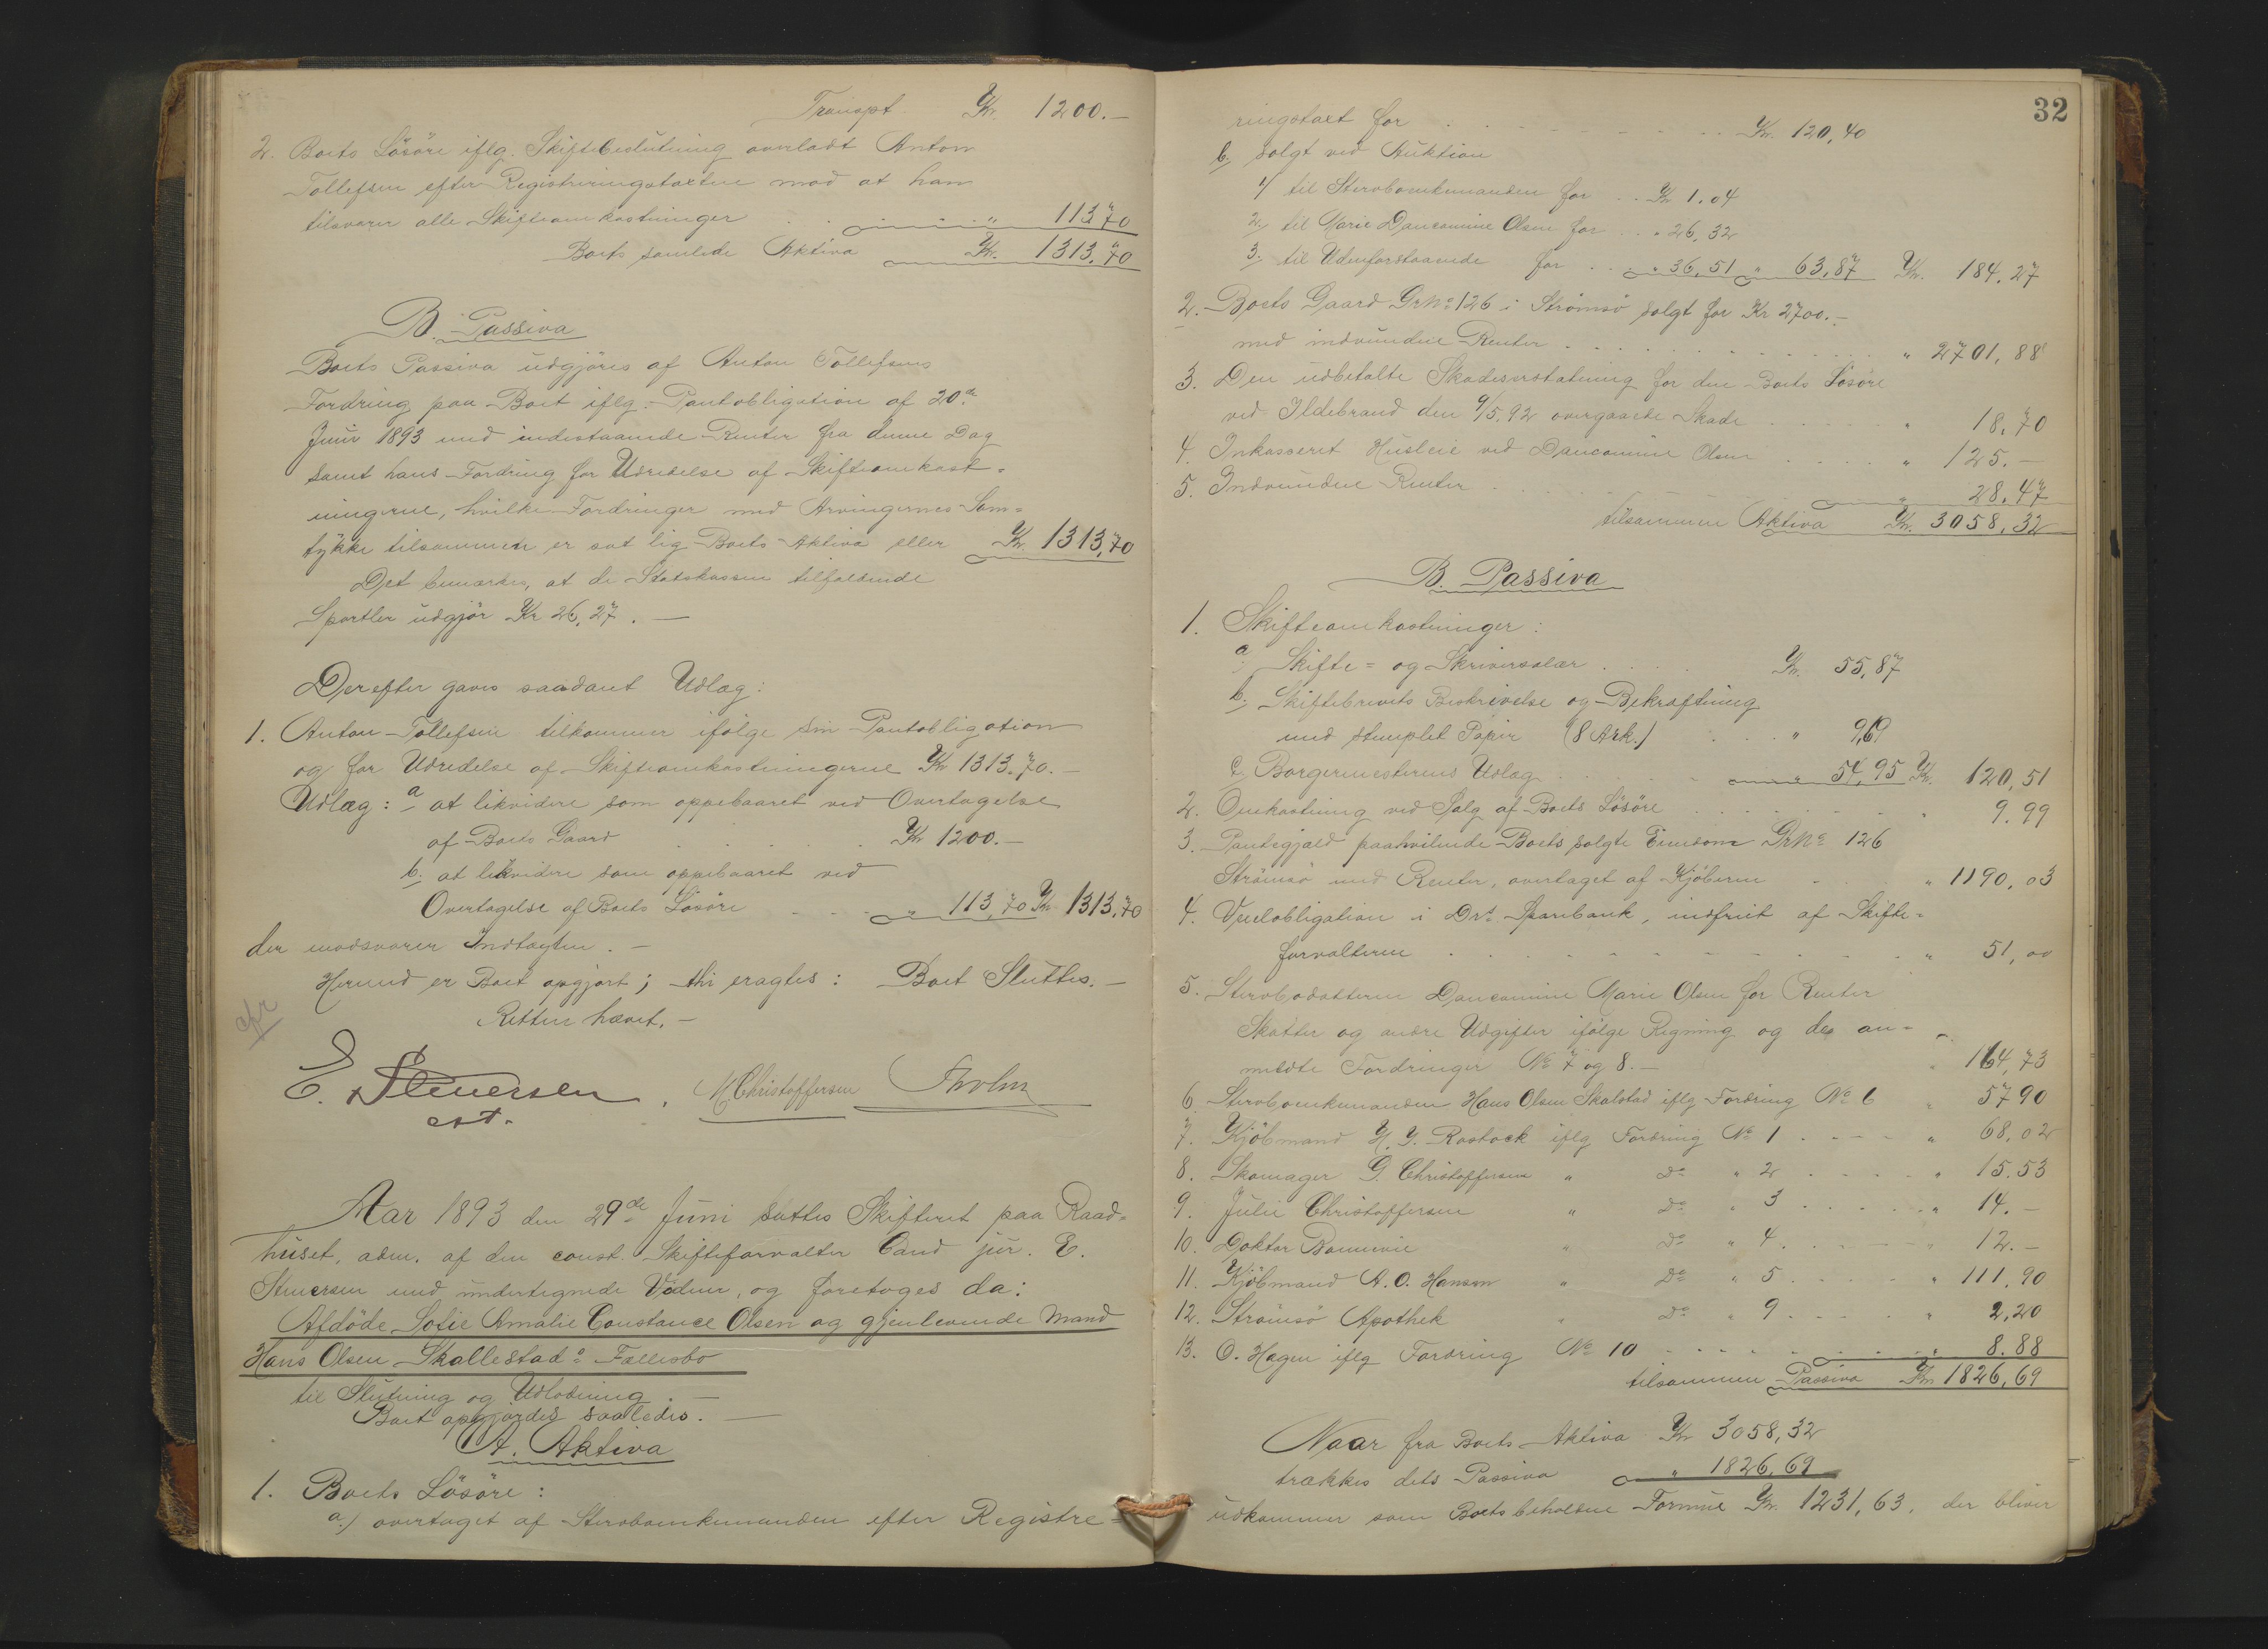 Transpt. Kr. 1200.—
2. Boets Lösöre iflg. Skiftebeslutning overladt Anton
Tollefsen efter Registreringstaxten mod at han
tilsvarer alle Skifteomkostninger . . . . . „ 113,70
Boets samlede Aktiva Kr. 1313,70
B. Passiva
Boets Passiva udgjöres af Anton Tollefsens
Fordring paa Boet iflg. Pantobligation af 20de
Juni 1893 med indestaaende Renter fra denne Dag
samt hans Fordring for Udredelse af Skifteomkost-
ningerne, hvilke Fordringer med Arvingernes Sam-
tykke tilsammen er sat lig Boets Aktiva eller Kr. 1313,70
Det bemærkes, at de Statskassen tilfaldende
Sportler udgjör Kr 26,27.—
Derefter gaves saadant Udlæg:
1. Anton Tollefsen tilkommer ifölge sin Pantobligation
og for Udredelse af Skifteomkostningerne Kr 1313,70.—
Udlæg: a at likvidere som oppebaaret ved Overtagelse
af Boets Gaard . . . . . Kr 1200.—
b. at likvidere som oppebaaret ved
Overtagelse af Boets Lösöre . . . „ 113,70 Kr. 1313,70
der modsvarer Indtægten.—
Hermed er Boet opgjort; thi eragtes: Boet Sluttes.—
Retten hævet.—
cfr
E. Stenersen. M. Christoffersen Tholm
cst.
Aar 1893 den 29de Juni sattes Skifteret paa Raad-
huset, adm. af den const. Skifteforvalter Cand jur. E.
Stenersen med undertegnede Vidner, og foretoges da:
Afdöde Sofie Amalie Constance Olsen og gjenlevende Mand
Hans Olsen Skallestads Fællesbo
til Slutning og Udlodning.—
Boet opgjordes saaledes.—
A. Aktiva
1. Boets Lösöre:
a.) overtaget af Stervboenkemanden efter Registre-
32
ringstaxt for . . . . . . Kr. 120,40
b. solgt ved Auktion
1/ til Stervboenkemanden for . . Kr 1.04
2/ til Marie Dancamine Olsen for . . „ 26,32
3. til Udenforstaaende for . . „ 36,51 „ 63,87 Kr. 184,27
2. Boets Gaard GrNo 126 i Strömsö solgt for Kr 2700.—
med indvundne Renter . . . . . „ 2701,88
3. Den udbetalte Skadeserstatning for den Boets Lösöre
ved Ildebrand den 9/5.92 overgaaede Skade . . . . „ 18.70
4. Inkasseret Husleie ved Dancamine Olsen . . . „ 125.—
5. Indvundne Renter . . . . . „ 28.47
tilsammen Aktiva Kr. 3058,32
B. Passiva
1. Skifteomkostninger:
a. Skifte- og Skriversalær . . . . Kr. 55,87
b. Skiftebrevets Beskrivelse og Bekræftning
med stemplet Papir (8 Ark.) . . . „ 9,69
c. Borgermesterens Udlæg . . . . „ 54,95 Kr. 120,51
2. Omkostning ved Salg af Boets Lösöre . . . . „ 9.99
3. Pantegjæld paahvilende Boets solgte Eiendom GrNo 126
Strömsö med Renter, overtaget af Kjöberen . . „ 1190,03
4. Vexelobligation i Drs. Sparebank, indfriet af Skifte-
forvalteren . . . . . . „ 51,00
5. Stervbodatteren Dancamine Marie Olsen for Renter
Skatter og andre Udgifter ifölge Regning og des an-
meldte Fordringer No 7 og 8.— „ 164,73
6. Stervboenkemanden Hans Olsen Skalstad iflg Fordring No 6 „ 57 90
7. Kjöbmand H. J. Rostock iflg Fordring No 1 . . . „ 68,02
8. Skomager G. Christoffersen „ Do „ 2 . . . . „ 15.53
9. Julie Christoffersen „ Do „ 3 . . . . „ 14.—
10. Doktor Bonnevie „ Do „ 4 . . . . „ 12.—
11. Kjöbmand A. O. Hansen „ Do „ 5 . . . . „ 111,90
12. Strömsö Apothek „ Do „ 9 . . . . „ 2,20
13. O. Hagen iflg Fordring No 10 . . . . „ 8.88
tilsammen Passiva Kr 1826,69
Naar fra Boets Aktiva Kr 3058,32
trækkes dets Passiva „ 1826,69
udkommer som Boets beholdne Formue Kr. 1231,63. der bliver